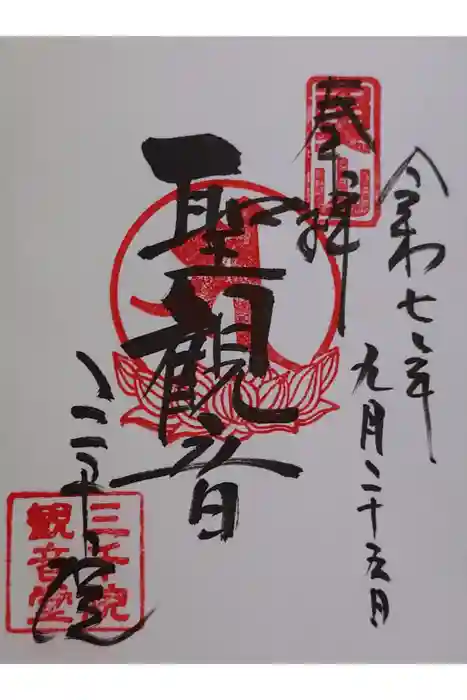 令和七年
九月二十五日
奉拝
聖観音
三千院
三千院
観音堂